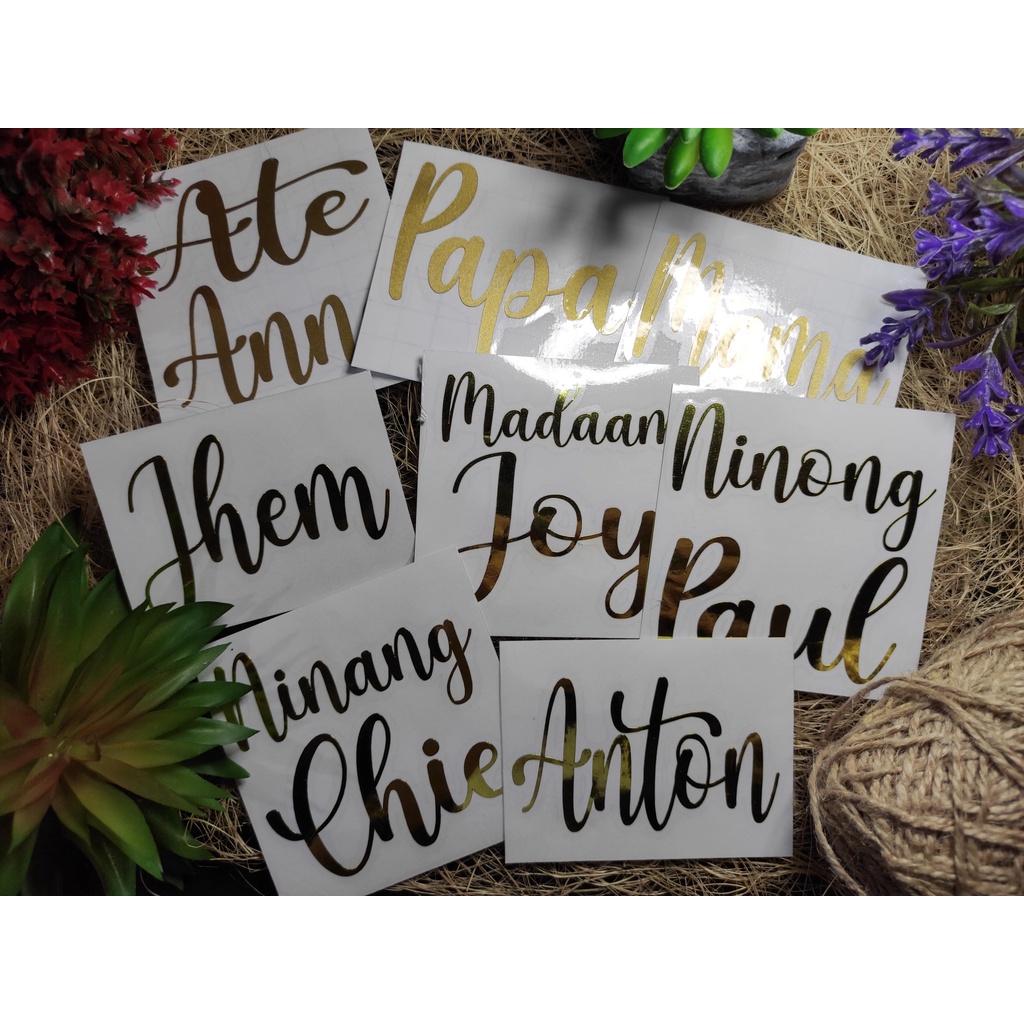 Ate
Ann
Papa
Mama
Jhem
Madaam
Joy
Ninong
Paul
Ninang
Chie
Anton